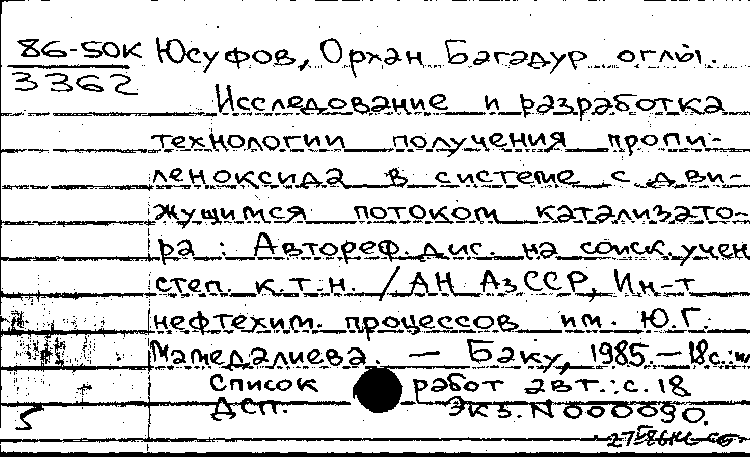 86-50К Юсуфов, Орхан Багадур оглы.
3362
Исследование и разработка
технологии получения пропи-
леноксида в системе с дви-
жущимся потоком катализато-
ра : Автореф. дис. на соиск. учен
степ. к.т.н. / АН АзССР, Ин-т
нефтехим. процессов им. Ю.Г.
Мамедалиева. — Баку, 1985. — 18с.:
Список работ авт.: с. 18
5 ДСП. Экз. N 000090.